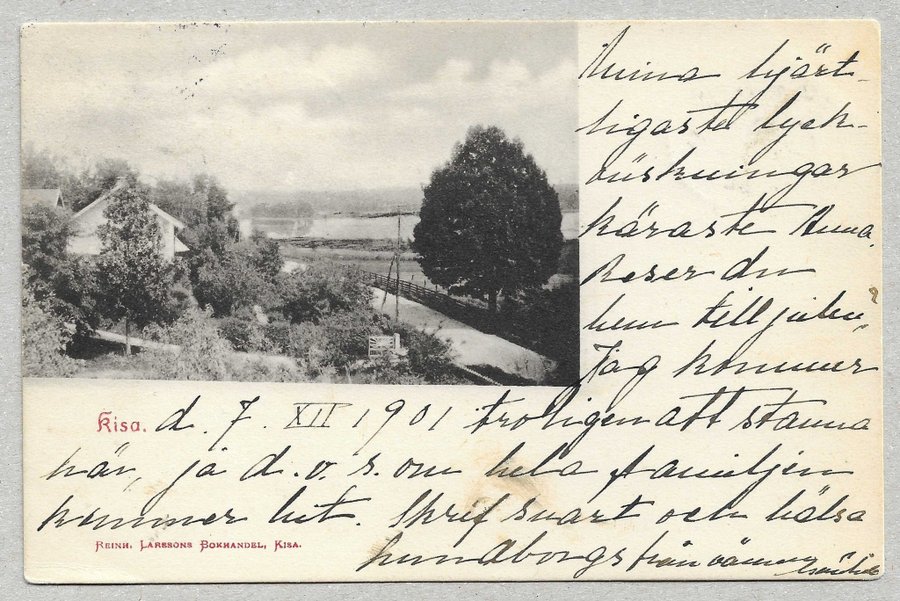 Mina hjärt-
ligaste lyck-
önskningar
käraste Anna.
Reser du
hem till julen,
Jag kommer
Kisa. d. 7. XII 1901 troligen att stanna
här, ja d. v. s. om hela familjen
kommer hit. Skrif snart och hälsa
Lundborgs från vännen
REINH. LARSSONS BOKHANDEL, KISA.